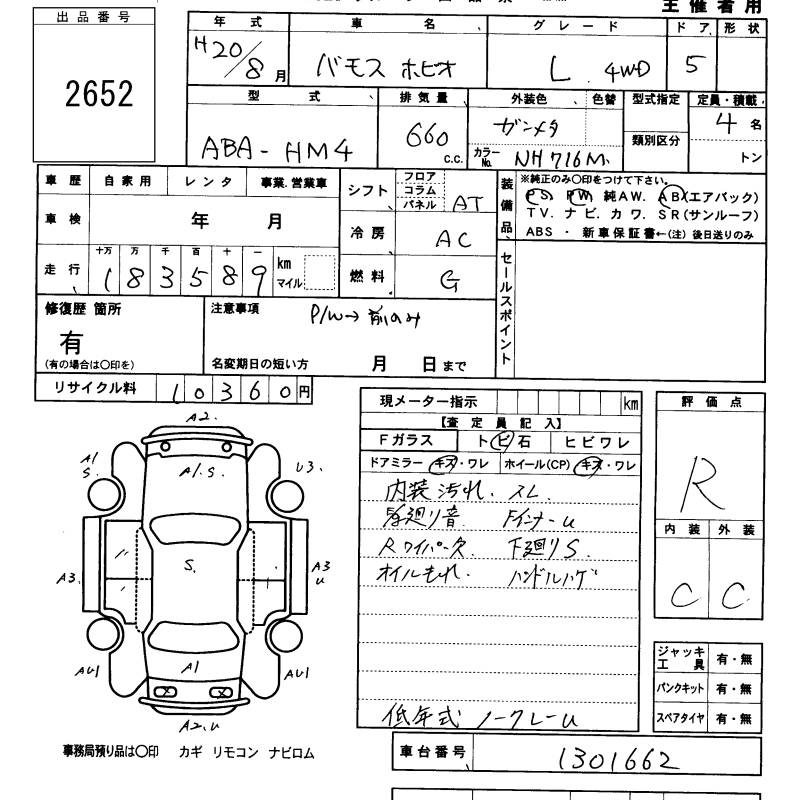 主催者用
出品番号
2652
年式 車名 グレード ドア 形状
H20/8月 バモス ホビオ L 4WD 5
型式 排気量 外装色 色替 型式指定 定員・積載
類別区分
ABA-HM4 660 c.c. ガンメタ 4名
カラーNo. NH716M トン
車歴 自家用 レンタ 事業.営業車
車検 年 月
走行 十万 万 千 百 十 一
183589 km マイル
シフト フロア コラム パネル AT
冷房 AC
燃料 G
装備品 ※純正のみ〇印をつけて下さい。
PS. PW. 純AW. AB(エアバック)
TV. ナビ. カワ. SR(サンルーフ)
ABS・新車保証書←(注)後日送りのみ
セールスポイント
修復歴 箇所
有
(有の場合は〇印を)
注意事項 P/W→前のみ
名変期日の短い方 月 日まで
リサイクル料 10360円
現メーター指示 km
【査定員記入】
Fガラス トビ石 ヒビワレ
ドアミラー キズ・ワレ ホイール(CP) キズ・ワレ
内装汚れ. スレ
足廻り音 Fインナーu
Rワイパー欠 下廻りS.
オイルもれ. ハンドルハゲ
低年式 ノークレーu
評価点
R
内装 外装
C C
ジャッキ工具 有・無
パンクキット 有・無
スペアタイヤ 有・無
車台番号 1301662
A2.
A1 S.
A1.S.
U3.
S.
A3.
A3 u
AU1
A1
AU1
A2.u
事務局預り品は〇印 カギ リモコン ナビロム